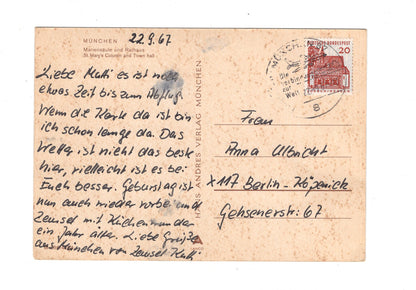 MÜNCHEN
Mariensäule und Rathaus
St. Mary's Column and Town hall
22.9.67
Liebe Mutti es ist noch
etwas Zeit bis zum Abflug
Wenn die Karte da ist bin
ich schon lange da. Das
Wetter ist nicht das beste
hier, vielleicht ist es bei
Euch besser. Geburtstag ist
nun auch wieder vorbei und
mit Kuchen
ein Jahr älter. Liebe Grüße
aus München von
HANS ANDRES VERLAG MÜNCHEN
MÜNCHEN
Die
zur
Welt
8
DEUTSCHE BUNDESPOST
20
Frau
Anna Ulbricht
X 117 Berlin-Köpenick
Gehsenerstr. 67